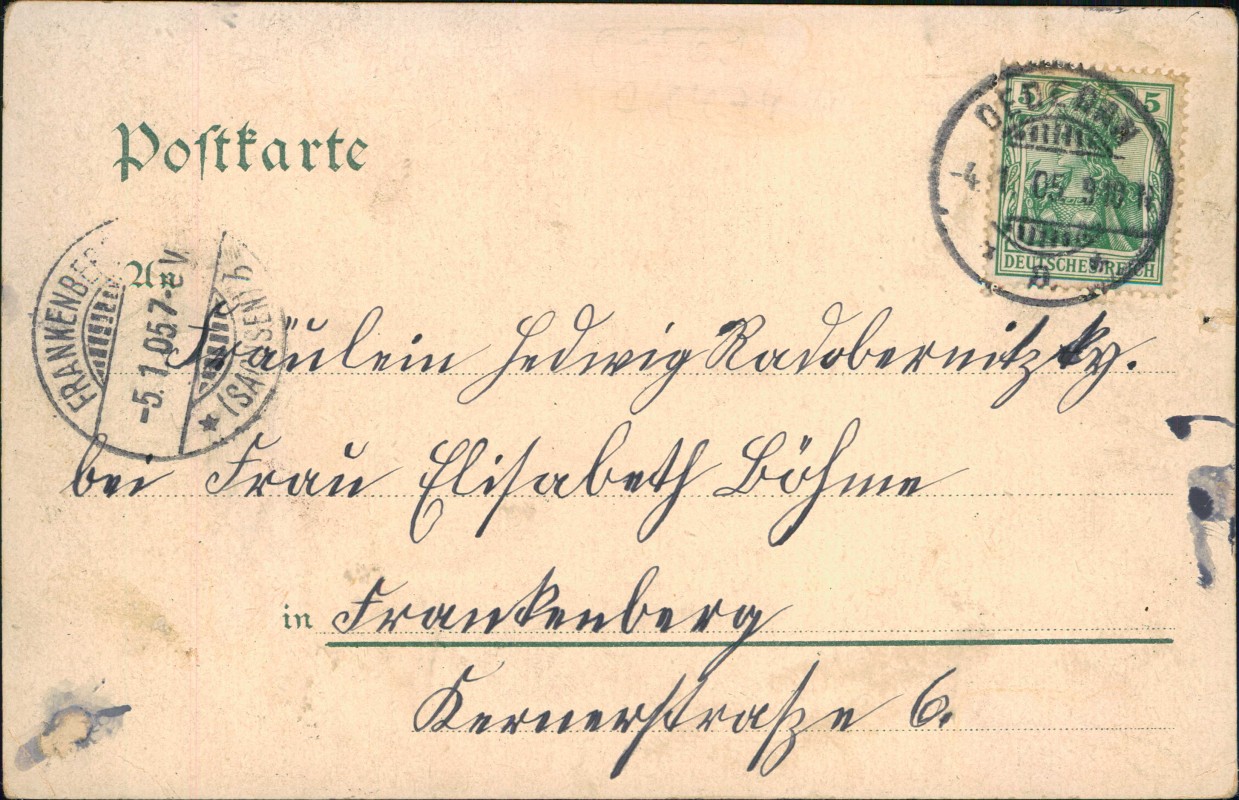 Postkarte
5 5
OEDERAN
-4. 1. 05. 9-10 N.
* b *
DEUTSCHES REICH
FRANKENBERG
(SACHSEN) b
-5.1.05.7-8 V.
*
An
Fräulein Hedwig Radobernitzky.
bei Frau Elisabeth Böhme
in Frankenberg
Kernerstraße 6.